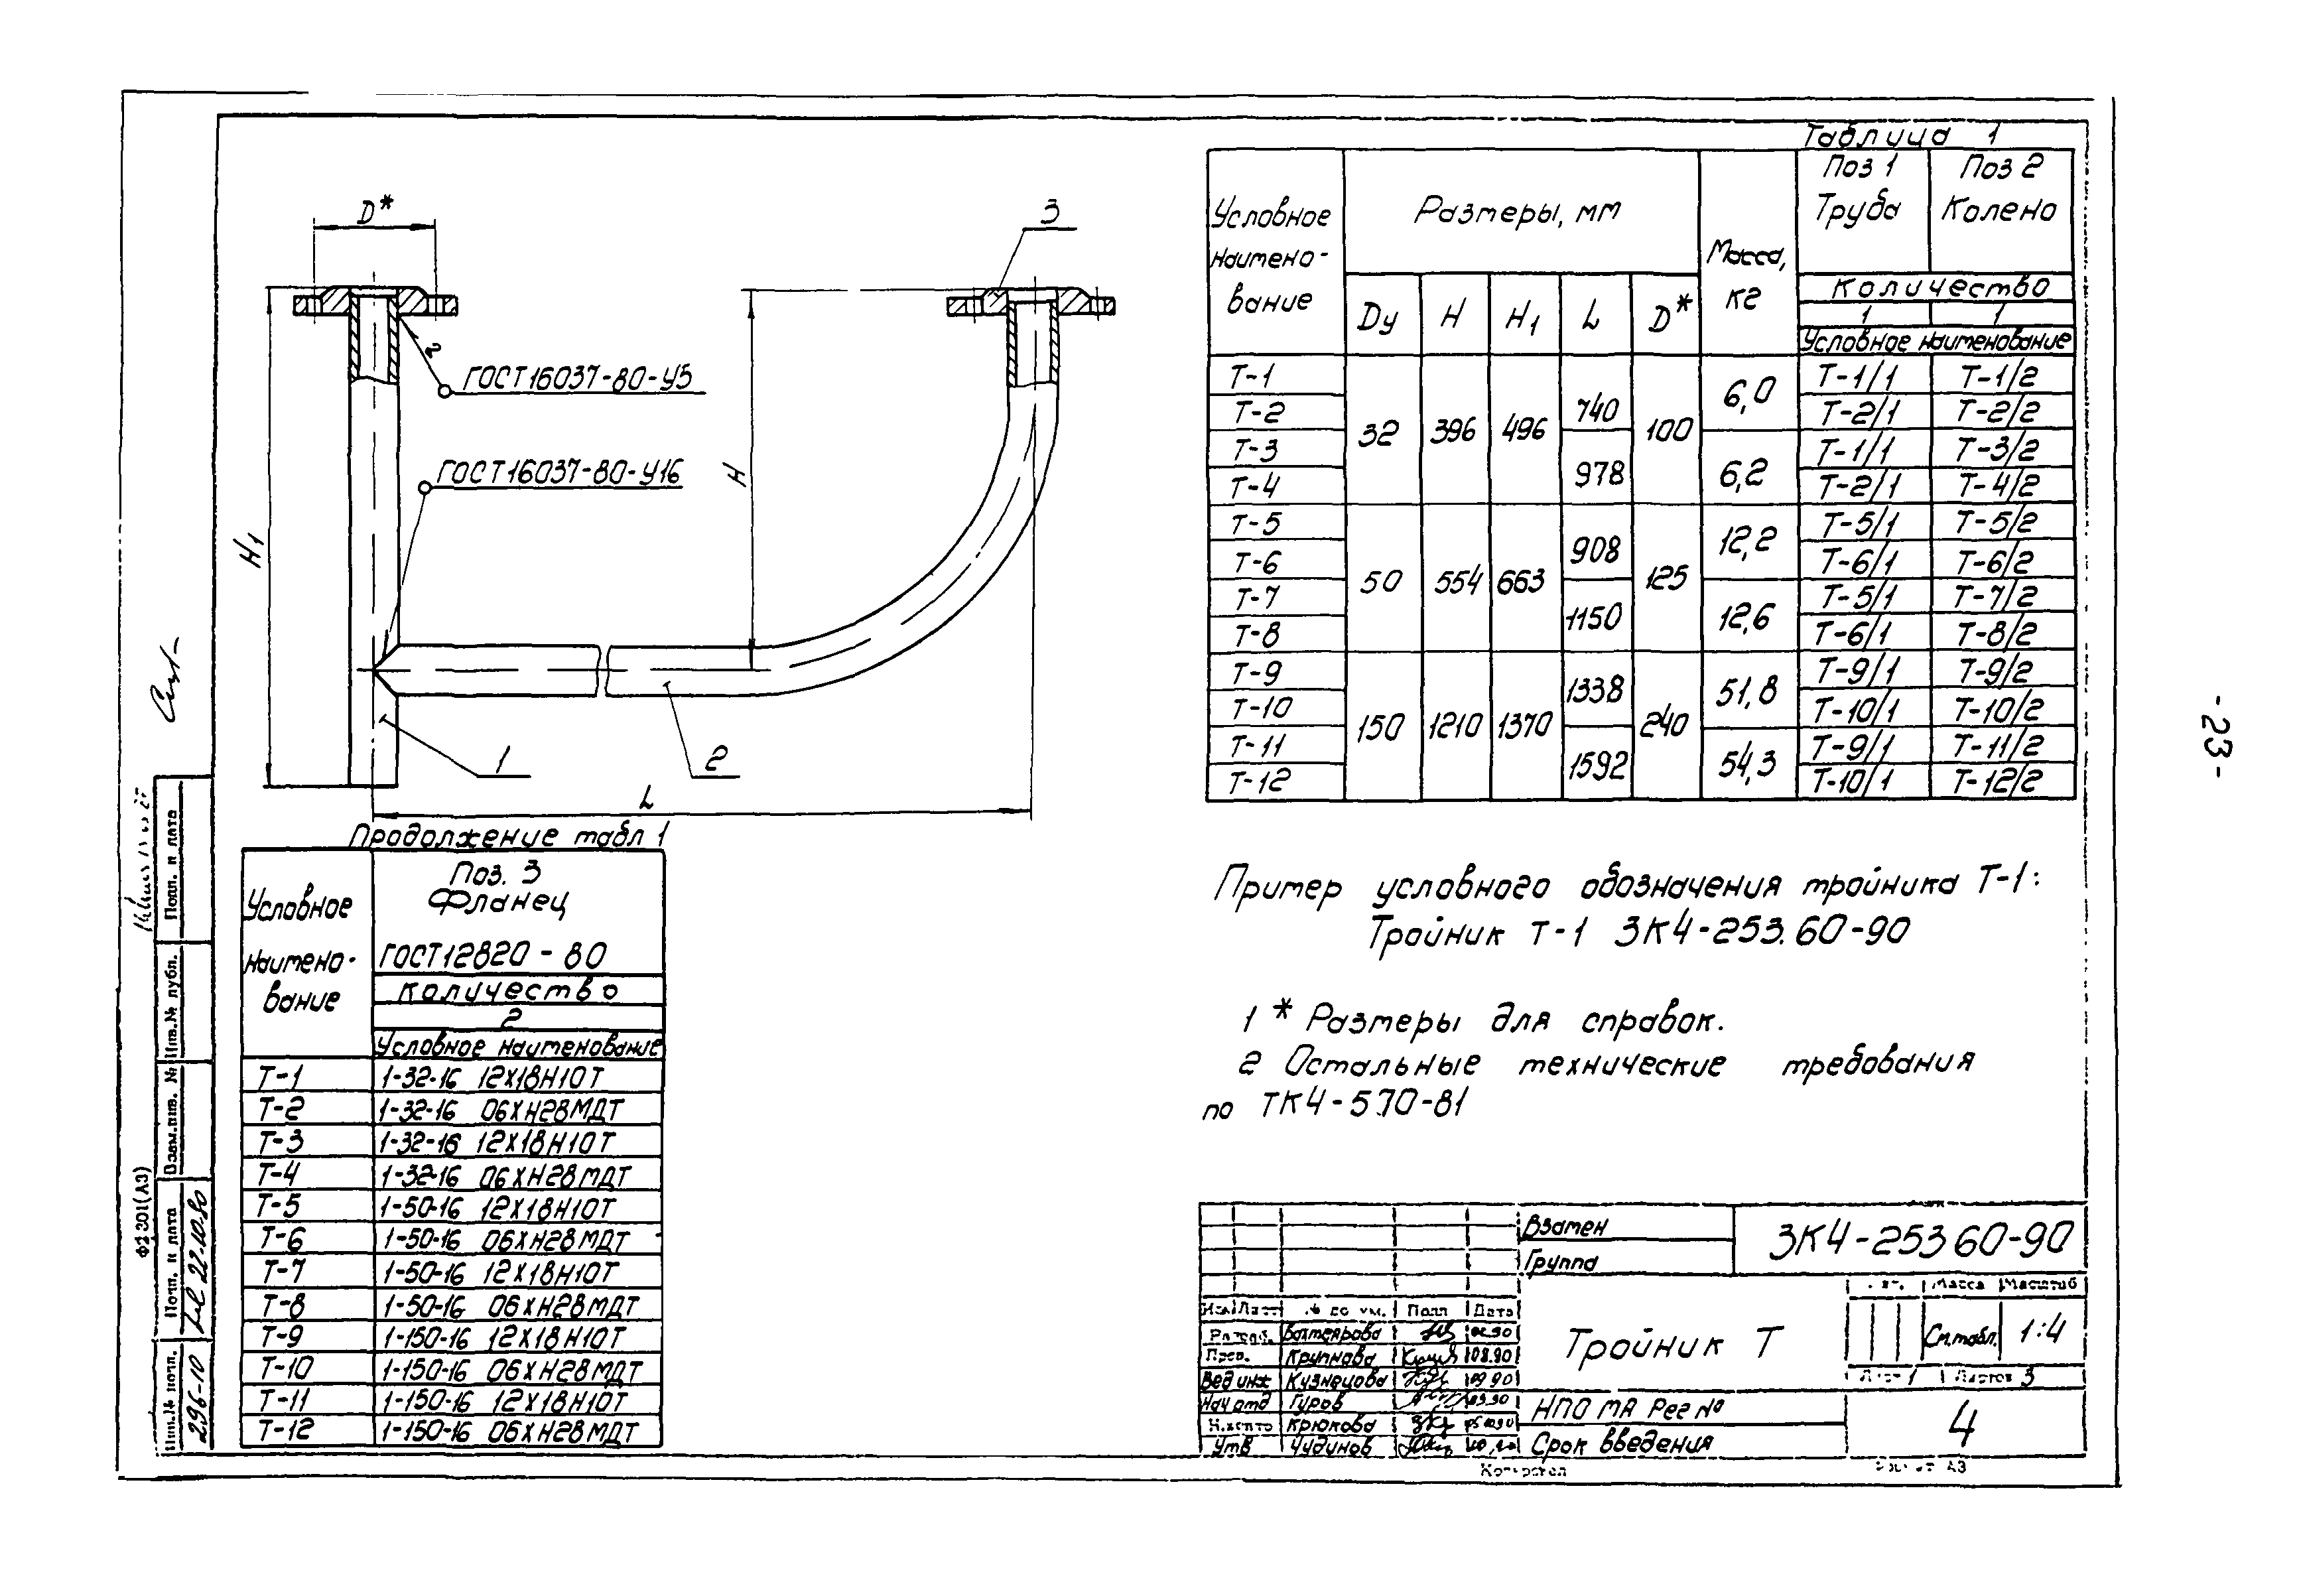 D*
3
ГОСТ16037-80-У5
ГОСТ16037-80-У16
H
H1
1
2
L
Таблица 1
Условное наимено-вание
Размеры, мм
Масса, кг
Поз 1 Труба
Поз 2 Колено
Количество
1 1
Условное наименование
Dу H H1 L D*
Т-1 32 396 496 740 100 6,0 Т-1/1 Т-1/2
Т-2 Т-2/1 Т-2/2
Т-3 978 6,2 Т-1/1 Т-3/2
Т-4 Т-2/1 Т-4/2
Т-5 50 554 663 908 125 12,2 Т-5/1 Т-5/2
Т-6 Т-6/1 Т-6/2
Т-7 1150 12,6 Т-5/1 Т-7/2
Т-8 Т-6/1 Т-8/2
Т-9 150 1210 1370 1338 240 51,8 Т-9/1 Т-9/2
Т-10 Т-10/1 Т-10/2
Т-11 1592 54,3 Т-9/1 Т-11/2
Т-12 Т-10/1 Т-12/2
Продолжение табл 1
Условное наимено-вание
Поз. 3
Фланец
ГОСТ12820-80
Количество
2
Условное наименование
Т-1 1-32-16 12Х18Н10Т
Т-2 1-32-16 06ХН28МДТ
Т-3 1-32-16 12Х18Н10Т
Т-4 1-32-16 06ХН28МДТ
Т-5 1-50-16 12Х18Н10Т
Т-6 1-50-16 06ХН28МДТ
Т-7 1-50-16 12Х18Н10Т
Т-8 1-50-16 06ХН28МДТ
Т-9 1-150-16 12Х18Н10Т
Т-10 1-150-16 06ХН28МДТ
Т-11 1-150-16 12Х18Н10Т
Т-12 1-150-16 06ХН28МДТ
Пример условного обозначения тройника Т-1:
Тройник Т-1 ЗК4-253.60-90
1 * Размеры для справок.
2 Остальные технические требования
по ТК4-570-81
-23-
Взамен
Группа
ЗК4-253 60-90
Изм Лист № докум. Подп Дата
Разраб. Вахтерова
Пров. Крупнова 08.90
Вед инж Кузнецова 09 90
Нач отд Гуров 09.90
Н.контр Крюкова
Утв Чудинов
Тройник Т
Лит. Масса Масштаб
См.табл. 1:4
Лист 1 Листов 3
НПО МА Рег №
Срок введения
4
Копировал
Формат А3
Ф2 301(А3)
Подп. и дата
Инв.№ дубл.
Взам.инв. №
Подп. и дата
22.10.80
Инв.№ подл.
296-10